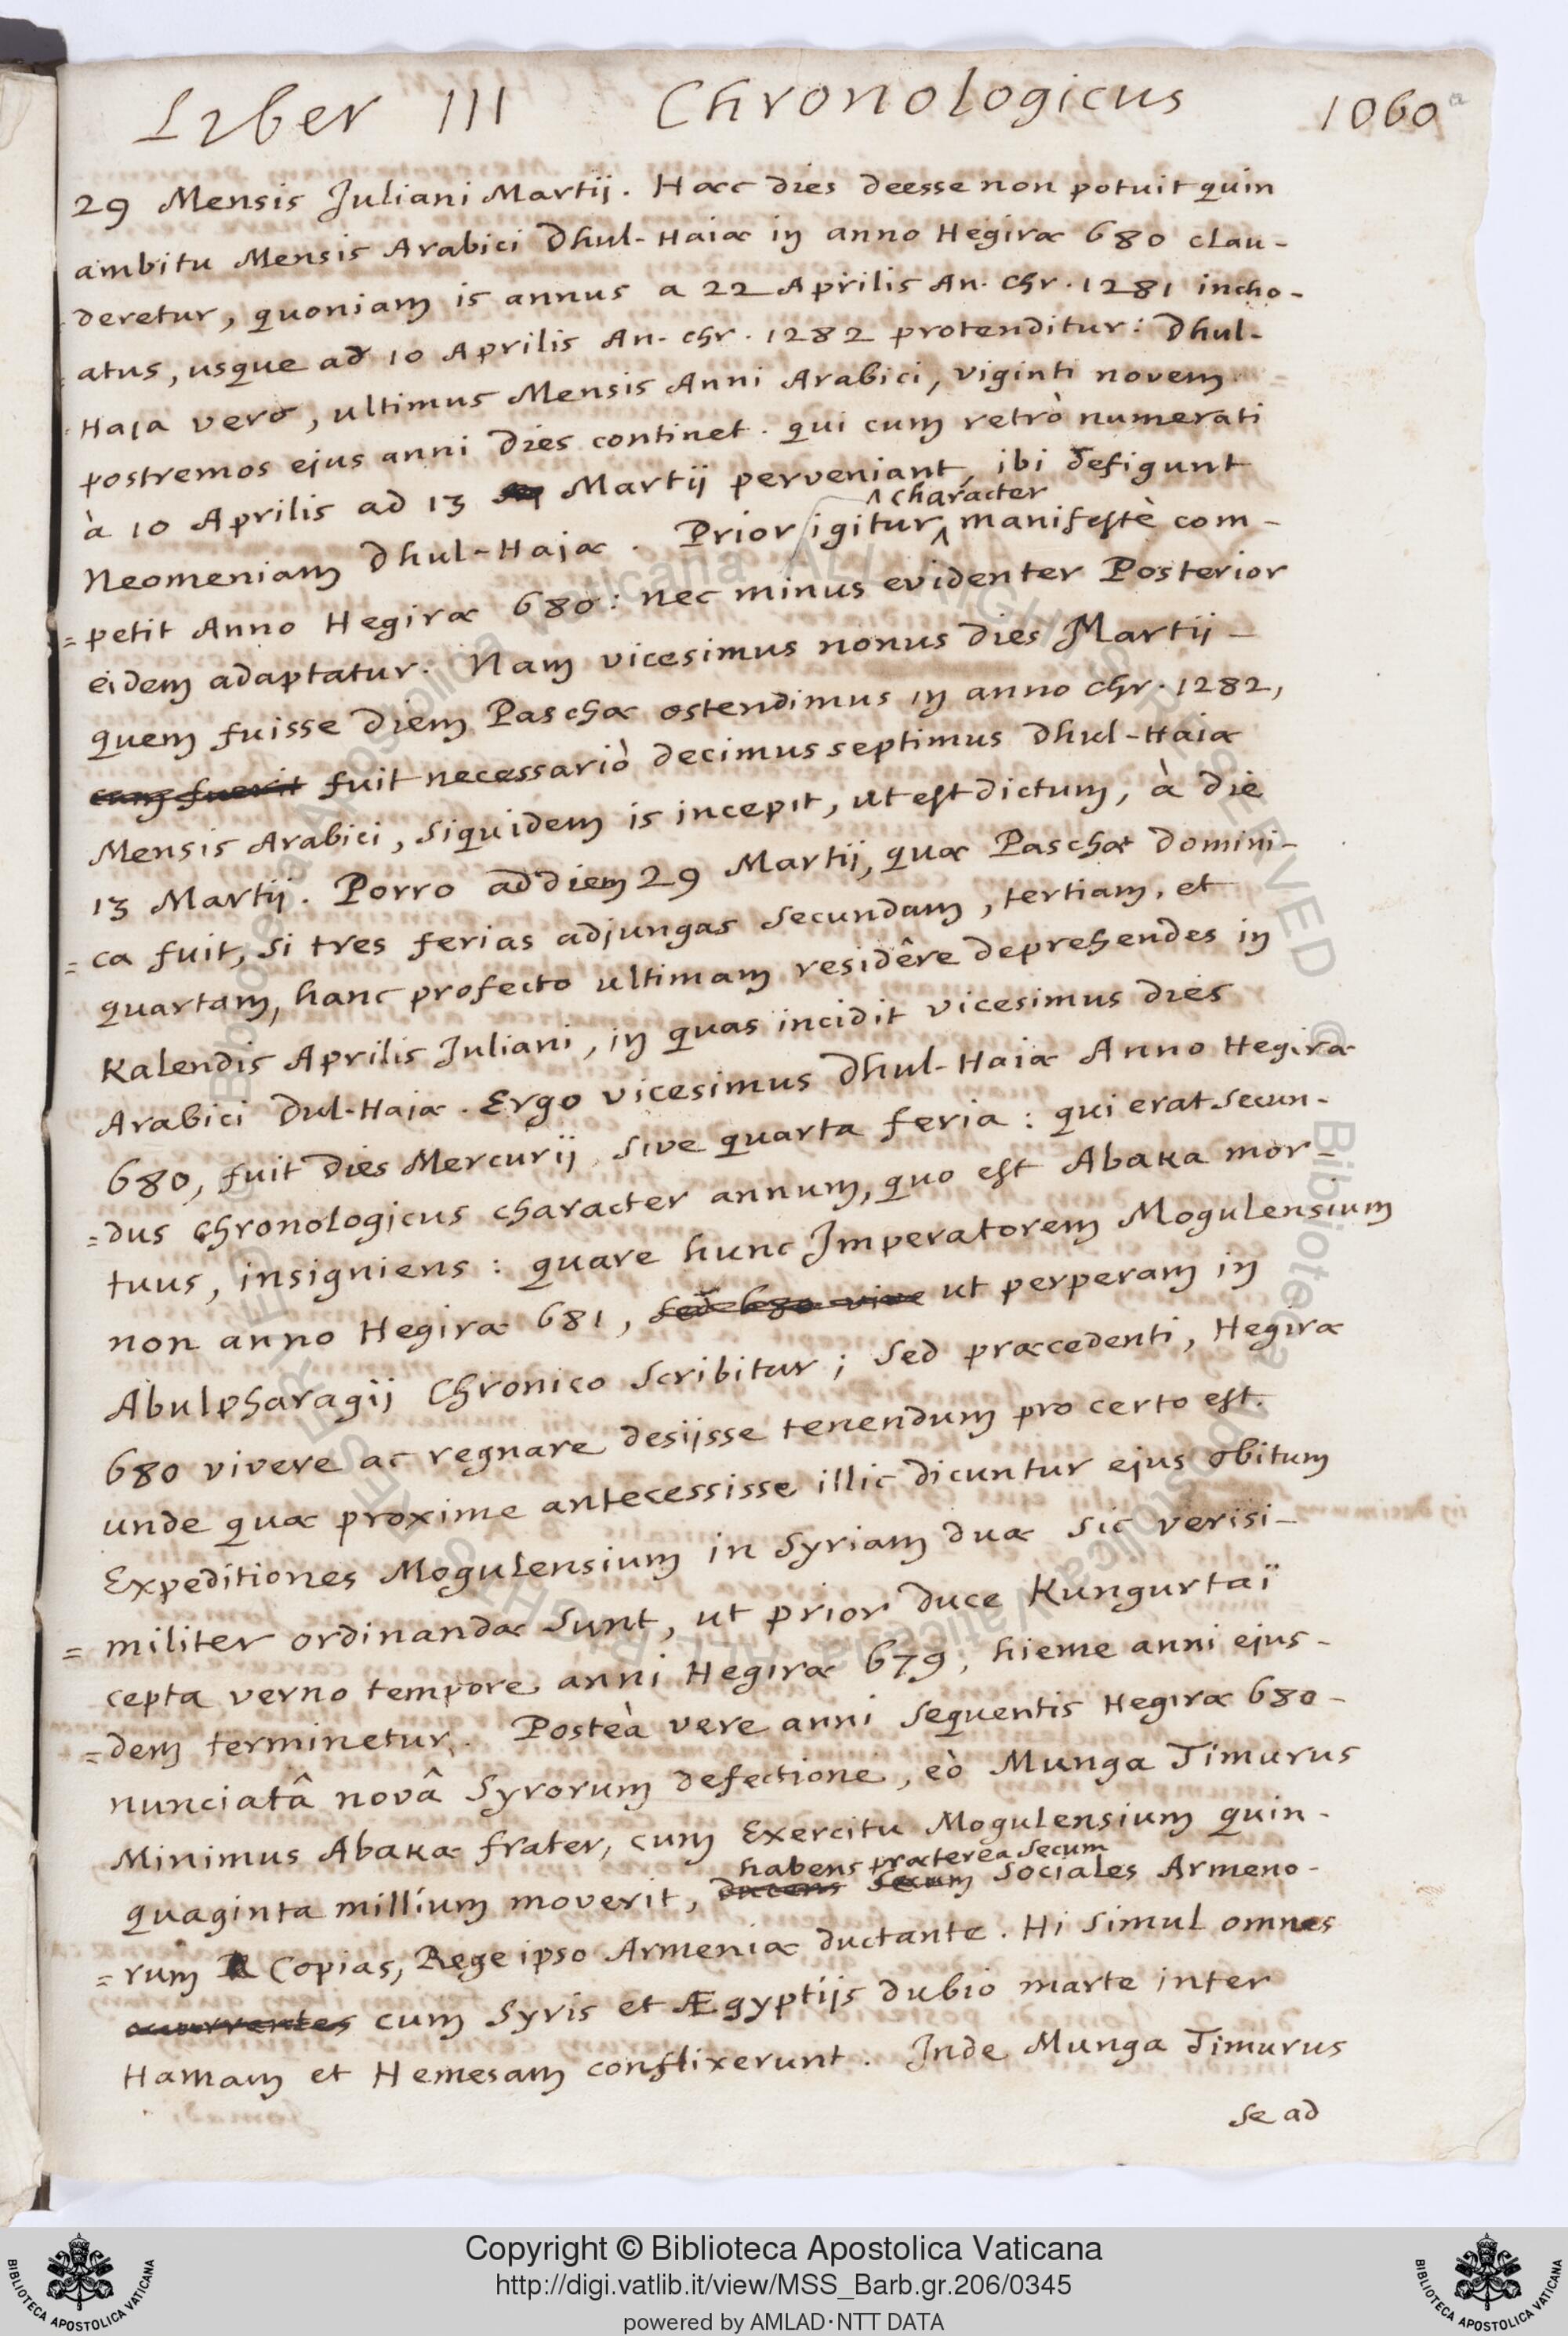 Liber III Chronologicus 1060
29 Mensis Juliani Martij. Haec dies deesse non potuit quin
ambitu Mensis Arabici Dhul-Haiae in anno Hegirae 680 clau-
deretur, quoniam is annus a 22 Aprilis An. Chr. 1281 incho-
atus, usque ad 10 Aprilis An. Chr. 1282 protenditur: Dhul-
Haja vero, ultimus Mensis Anni Arabici, viginti novem
postremos ejus anni dies continet. qui cum retrò numerati
à 10 Aprilis ad 13 Martij perveniant, ibi defigunt
Neomeniam Dhul-Hajae. Prior igitur character manifestè com-
=petit Anno Hegirae 680: nec minus evidenter Posterior
eidem adaptatur. Nam vicesimus nonus dies Martij
quem fuisse diem Paschae ostendimus in anno Chr. 1282,
cum fuerit fuit necessariò decimus septimus Dhul-Haiae
Mensis Arabici, siquidem is incepit, ut est dictum, à die
13 Martij. Porro ad diem 29 Martij, quae Paschae Domini-
=ca fuit, si tres ferias adjungas secundam, tertiam, et
quartam, hanc profecto ultimam residêre deprehendes in
Kalendis Aprilis Juliani, in quas incidit vicesimus dies
Arabici Dul-Hajae. Ergo vicesimus Dhul-Haiae Anno Hegirae
680, fuit dies Mercurij, sive quarta feria: qui erat secun-
=dus chronologicus character annum, quo est Abaka mor-
tuus, insigniens: quare hunc Imperatorem Mogulensium
non anno Hegirae 681, sed 680 vive ut perperam in
Abulpharagij Chronico scribitur; sed praecedenti, Hegirae
680 vivere ac regnare desijsse tenendum pro certo est.
unde quae proxime antecessisse illic dicuntur ejus obitum
Expeditiones Mogulensium in Syriam duae sic verisi-
=militer ordinandae sunt, ut prior duce Kungurtaï
cepta verno tempore anni Hegirae 679, hieme anni ejus-
=dem terminetur. Posteà vere anni sequentis Hegirae 680
nunciatâ novâ Syrorum defectione, eò Munga Timurus
Minimus Abakae frater, cum Exercitu Mogulensium quin-
habens praeterea secum
quaginta millium moverit, ducens secum sociales Armeno-
=rum R Copias, Rege ipso Armeniae ductante. Hi simul omnes
cum Syris et Ægyptijs dubio marte inter
Hamam et Hemesam conflixerunt. Inde Munga Timurus
se ad
Copyright © Biblioteca Apostolica Vaticana
http://digi.vatlib.it/view/MSS_Barb.gr.206/0345
powered by AMLAD·NTT DATA
BIBLIOTECA APOSTOLICA VATICANA
BIBLIOTECA APOSTOLICA VATICANA